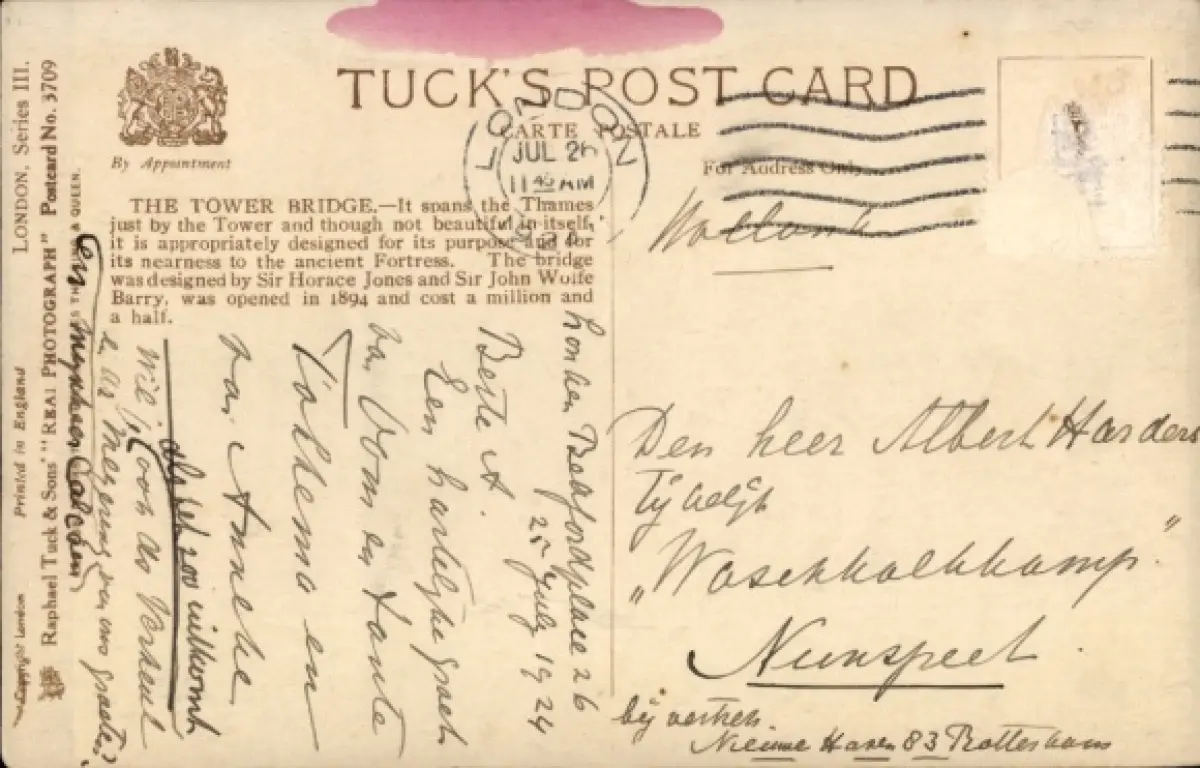 TUCK'S POST CARD
CARTE POSTALE
By Appointment
For Address Only
LONDON
JUL 26
11 45 AM
THE TOWER BRIDGE.—It spans the Thames
just by the Tower and though not beautiful in itself,
it is appropriately designed for its purpose and for
its nearness to the ancient Fortress. The bridge
was designed by Sir Horace Jones and Sir John Wolfe
Barry, was opened in 1894 and cost a million and
a half.
LONDON, Series III.
Printed in England
Copyright London
Raphael Tuck & Sons' "REAL PHOTOGRAPH" Postcard No. 3709
QUEEN.
Londen Bedfordplace 26
25 July 1924
Beste A.
Een hartelijke groet
van Oom en Tante
en
van Anneke
Wil je ook
als het zoo uitkomt
en Mijnheer
groeten?
Holland
Den heer Albert Harders
tijdelijk
"
Nunspeet
bij vertrek
Nieuwe Haven 83 Rotterdam